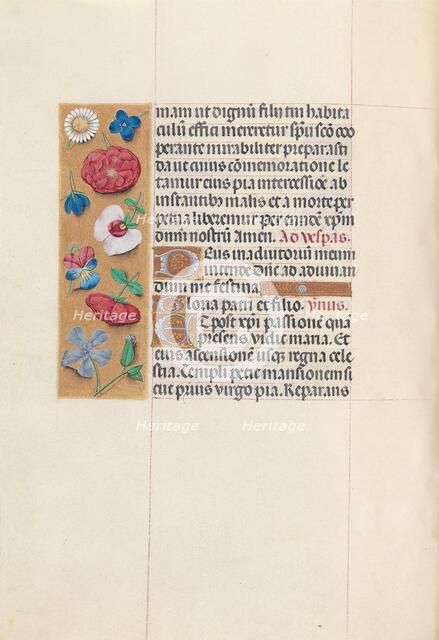 mam ut dignū filij tui habita
culū effici mereretur spū scō coo
perante mirabiliter preparasti
da ut cuius cōmemoratione le
tamur eius pia intercessiōe ab
instantibꝰ malis et a morte per
petua liberemur per eundē xp̄m
dn̄m nostrū Amen. Ad vesp̄as.
Deus in adiutorium meum
intende Dn̄e ad adiuuan
dum me festina
Gloria patri et filio. ymnus.
Et post xp̄i passionē qua
presens vidit maria. Et
eius ascensionē usq; regna cele
stia. Templi petit mansionem si
cut prius virgo pia. Reparans
Heritage
Heritage
Heritage
Heritage
Heritage
Heritage